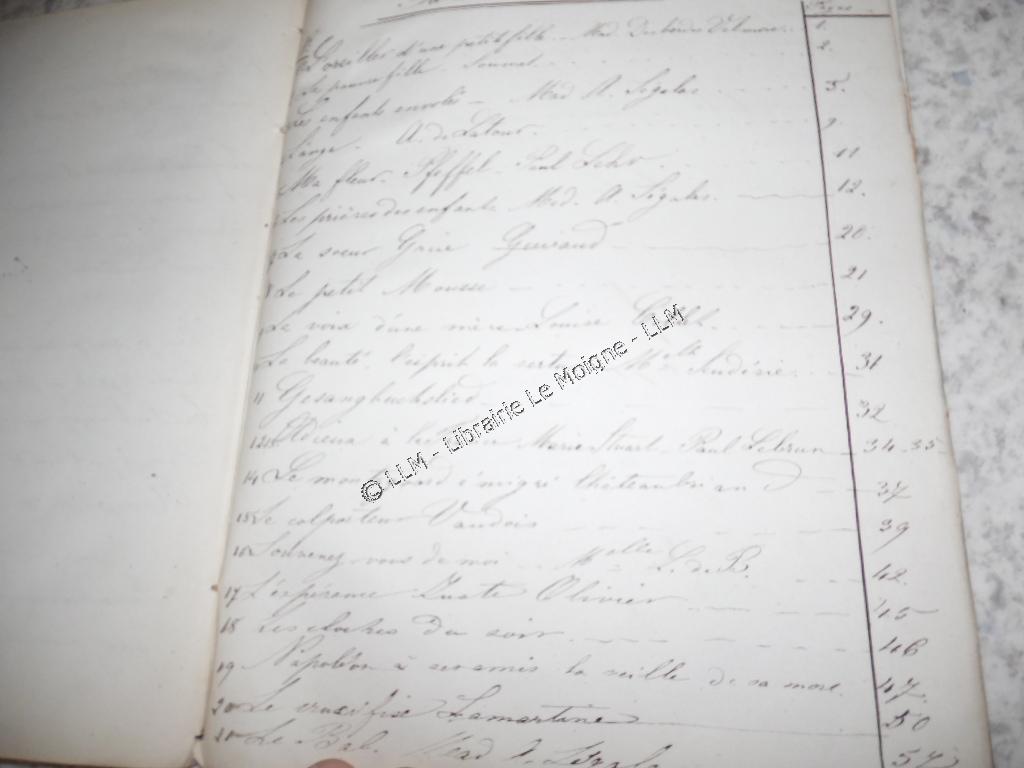 Pages
L'oreiller d'une petite fille - Mad. Desbordes Valmore. 1.
La jeune fille. Soumet 2.
Les enfants envolés - Mad A. Ségalas 5.
L'ange. A. de Latour. 9
Ma fleur. Pfeffel. Paul Lehr. 11
Les prières des enfants Mad. A. Ségalas. 12.
La soeur Grise Guiraud 20.
8 Le petit Mousse 21
9 La voix d'une mère Louise 29.
La beauté, l'esprit la vertu Melle 31
11 Gesangbuchslied 32
12 Adieux à Marie Stuart. Paul Lebrun 34-35
14 Le émigré Châteaubriand 37
15 Le colporteur Vaudois 39
16 Souvenez-vous de moi Melle L. de P. 42.
17 L'espérance Juste Olivier 45
18 Les cloches du soir 46
19 Napoléon à ses amis la veille de sa mort 47.
20 Le crucifix Lamartine 50
Le Bal. Mad 57
© LLM - Librairie Le Moigne - LLM